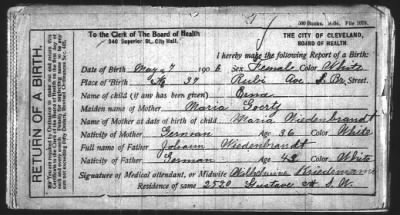 To the Clerk of The Board of Health
340 Superior St., City Hall.
THE CITY OF CLEVELAND,
BOARD OF HEALTH.
I hereby make the following Report of Birth:
RETURN OF A BIRTH.
Date of Birth May 7 190 Sex Female Color White
Place of Birth No. 37 Ruby Ave S. Br. Street.
Name of child (if any has been given) Erna
Maiden name of Mother Maria Goertz
Name of Mother at date of birth of child Maria Wiedenbrandt
Nativity of Mother German Age 36 Color White
Full name of Father Johann Wiedenbrandt
Nativity of Father German Age 42 Color White
Signature of Medical attendant, or Midwife Wilhelmine Friedemann
Residence of same 2520 Gustave St S.W.